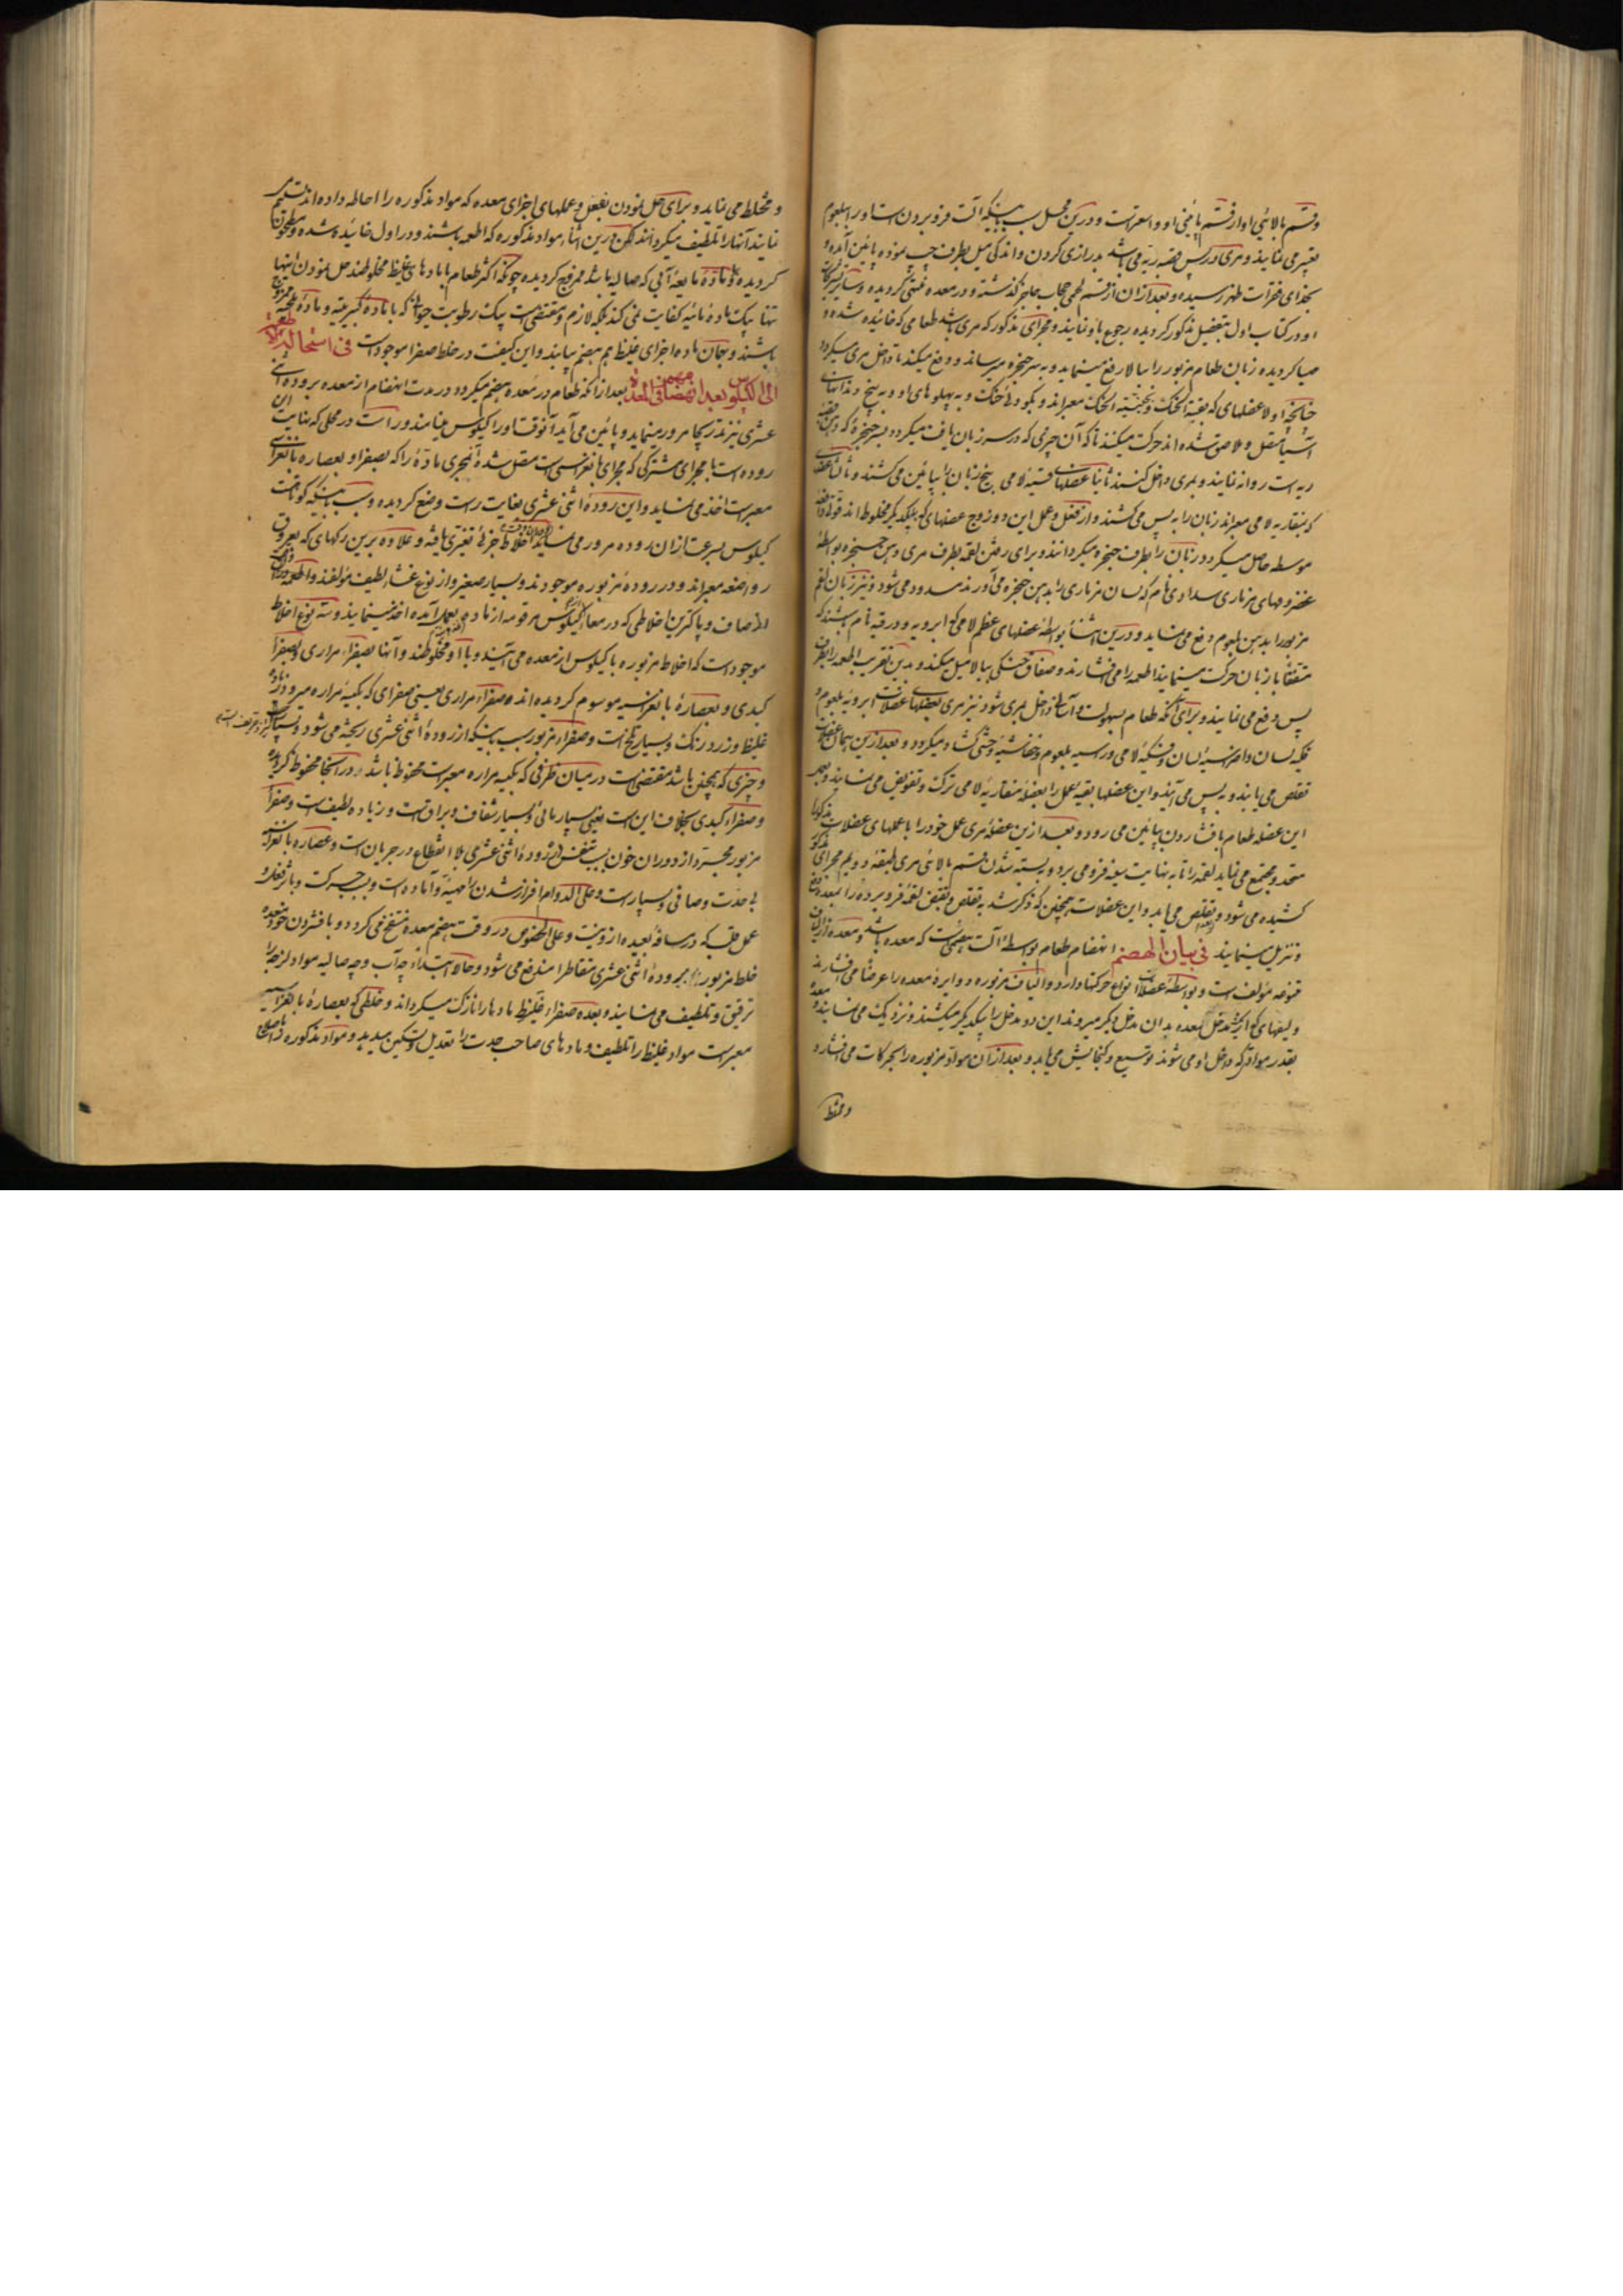 وقسم بالائی او از قسم پائینی او واسعتر است و درین محل سبب اینکه آلت فرو بردن است او را بلعوم
تعبیر می نمایند و مری در پس قصبه ریه می باشد بدرازی کردن و اندکی میل بطرف چپ نموده پائین آمده و
بحذای فقرات ظهر رسیده و بعد از آن از قسم لحمی حجاب حاجز گذشته و در معده منتهی گردیده و سائر
او در کتاب اول بتفصیل مذکور گردیده رجوع باو نمایند و مجرای مذکور که مری باشد طعامی که خائیده شده و
مهیا گردیده زبان طعام مزبور را ببالا رفع مینماید و به سر حنجره میرساند و دفع میکند تا داخل مری میگردد
چنانچه اولا عضلهای که بقبیة الحنک و بجنبیة الحنک معبراند و بگودئ حنک و به پهلوهای او و به بیخ دندانهای
آسیا متصل و ملاصق شده اند حرکت میکنند تا که آن چیزی که در سر زبان یافت میگردد بسر حنجره که دهن قصبه
ریه است روانه نمایند و بمری داخل کنند ثانیا عضلهای لامی بیخ زبان را بپائین می کشند و ثالثا عضلهای
که بمنقاریه لامی معبراند زبان را به پس می کشند و از فعل و عمل این دو زوج عضلهای که بیکدیگر مخلوط اند
موسطه حاصل میگردد زبان را بطرف حنجره میگردانند و برای رفتن لقمه بطرف مری دهن حنجره بواسطه
غضروفهای مزماری سدادی تام که لسان مزماری را بدهن حنجره می آورند مسدود می شود و نیز زبان لقم
مزبور را بدهن بلعوم دفع می نماید و درین اثنا بواسطه عضلهای عظم لامی که ابرویه و ورقیه نام باشند که
متفقا با زبان حرکت مینمایند اطعمه را می فشارند و صفاق حنکی ببالا میل میکند و بدین تقریب اطعمه را بطرف
پس دفع می نمایند و برای آنکه طعام بسهولت و آسانی داخل مری شود نیز مری بعضلهای عضلات ابرویه بلعوم و
فکیه لسان و اضراسیه لسان و فکیه لامی و راسیه بلعوم و خفاشیه وحشی گشاد میگردد و بعد ازین همان عضلات
تقلص می یابند و به پس می آیند و این عضلها بقیه عمل را بعضله منقاریه لامی ترک و تفویض می نمایند و بعمل
این عضله طعام بافشاردن بپائین می رود و بعد ازین عضله مری عمل خود را با عملهای عضلات مذکوره
متحد و مجتمع می نماید لقمه را تا به نهایت بیغه فرو می برد و بسته شدن قسم بالائی مری طبقه دویم مجرای مذکور
کشیده می شود و تقلص می یابد و این عضلات همچنین که ذکر شد به تقلص و تقبض لقمه فرو برده را بمعده دفع
و تنزیل مینمایند فی بیان الهضم انهضام طعام بواسطه آلت هضمی است که معده باشد و معده از الیاف
متنوعه مؤلف است و بواسطه عضلات انواع حرکتها دارد و الیاف مزبوره دوایره معده را عرضا می فشارند
و لیفهای که از یک مدخل معده بدان مدخل دیگر میروند این دو مدخل را بیکدیگر میکشند و نزدیک می نمایند و معده
بقدر موادی که داخل او می شوند توسیع و گنجایش می یابد و بعد از آن مواد مزبوره را بحرکات می فشارد
و مختلط
و مختلط می نماید و برای حل نمودن بفعل و عملهای اجزای معده که مواد مذکوره را احاطه داده اند تتمیم
نمایند آنها را تلطیف میگردانند لکن درین اثنا مواد مذکوره که اطعمه باشند و در اول خائیده شده و مطحون
گردیده و با ماده مایعه آبی که صالیه باشد ممزوج گردیده چونکه اکثر طعام با مادهای غلیظ مخلوطند حل نمودن اینها
تنها بیک ماده مائیه کفایت نمی کند بلکه لازم و مقتضی است بیک رطوبت حیوانی که با ماده کبریتیه و ماده ملحیه ممزوج
باشند و بهمان ماده اجزای غلیظ هم هضم میابند و این کیفیت در خلط صفرا موجود است فی استحالة الاطعمة
الی الکیلوس بعد انهضامهن فی المعدة بعد از آنکه طعام در معده هضم میگردد در مدت انهضام از معده بروده اثنی
عشری نیز بتدریج مرور مینماید و پائین می آید آنوقت او را کیلوس مینامند و راست در محلی که نهایت این
روده است با مجرای مشترکی که مجرای بانقراسی است متصل شده آنمجری ماده را که بصفرا و بعصاره بانقراسی
معبر است اخذ می نماید و این روده اثنی عشری بغایت راست وضع گردیده و سبب اینکه کوتاهست
کیلوس بسرعت از آن روده مرور می نماید اخلاط جزئی تغیری یافته و علاوه برین رگهای که بعروق
رواضعه معبراند و در روده مزبوره موجودند و بسیار صغیر و از نوع غشاء لطیف مؤلفند و اطعمه و از آن
الصاف و پاکترین اخلاطی که در معا کیلوس مرقومه از ماده بعمل آمده اخذ مینمایند و سه نوع اخلاط
موجود است که اخلاط مزبوره با کیلوس از معده می آیند و با او مخلوطند و آنها بصفراء مراری و بصفراء
کبدی و بعصاره بانقراسیه موسوم گردیده اند صفراء مراری یعنی صفرای که بکیسه مراره میرود زیاده
غلیظ و زرد رنگ و بسیار تلخ است و صفراء مزبور سبب اینکه از روده اثنی عشری ریخته می شود
و چیزی که همچنین باشد مقتضی است در میان ظرفی که بکیسه مراره معبر است محفوظ باشد در آنجا محفوظ گردیده
و صفراء کبدی بخلاف این است یعنی بسیار مائی و بسیار شفاف و براق است و زیاده لطیف است و صفراء
مزبور مجبرد از دوران خون بسبب تنفس از روده اثنی عشری بلا انقطاع در جریان است و عصاره بانقراسیه
بی حدت و صافی و بسیار است و علی الدوام افراز شدن را مهیا و آماده است و بسبب حرکت و باثر فعل و
عمل قلب که در مسافه بعیده ازوست و علی الخصوص در وقت هضم معده منتفخ می گردد و با فشردن خود معده
خلط مزبور را بروده اثنی عشری متقاطرا مندفع می شود و حالا ابتداء چه آب و چه صالیه مواد لزجه را
ترقیق و تلطیف می نمایند و بعده صفراء غلیظ مادها را نازک میگرداند و خلطی که بعصاره بانقراسیه
معبر است مواد غلیظ را تلطیف و مادهای صاحب حدت را تعدیل و تسکین میدهد و مواد مذکوره